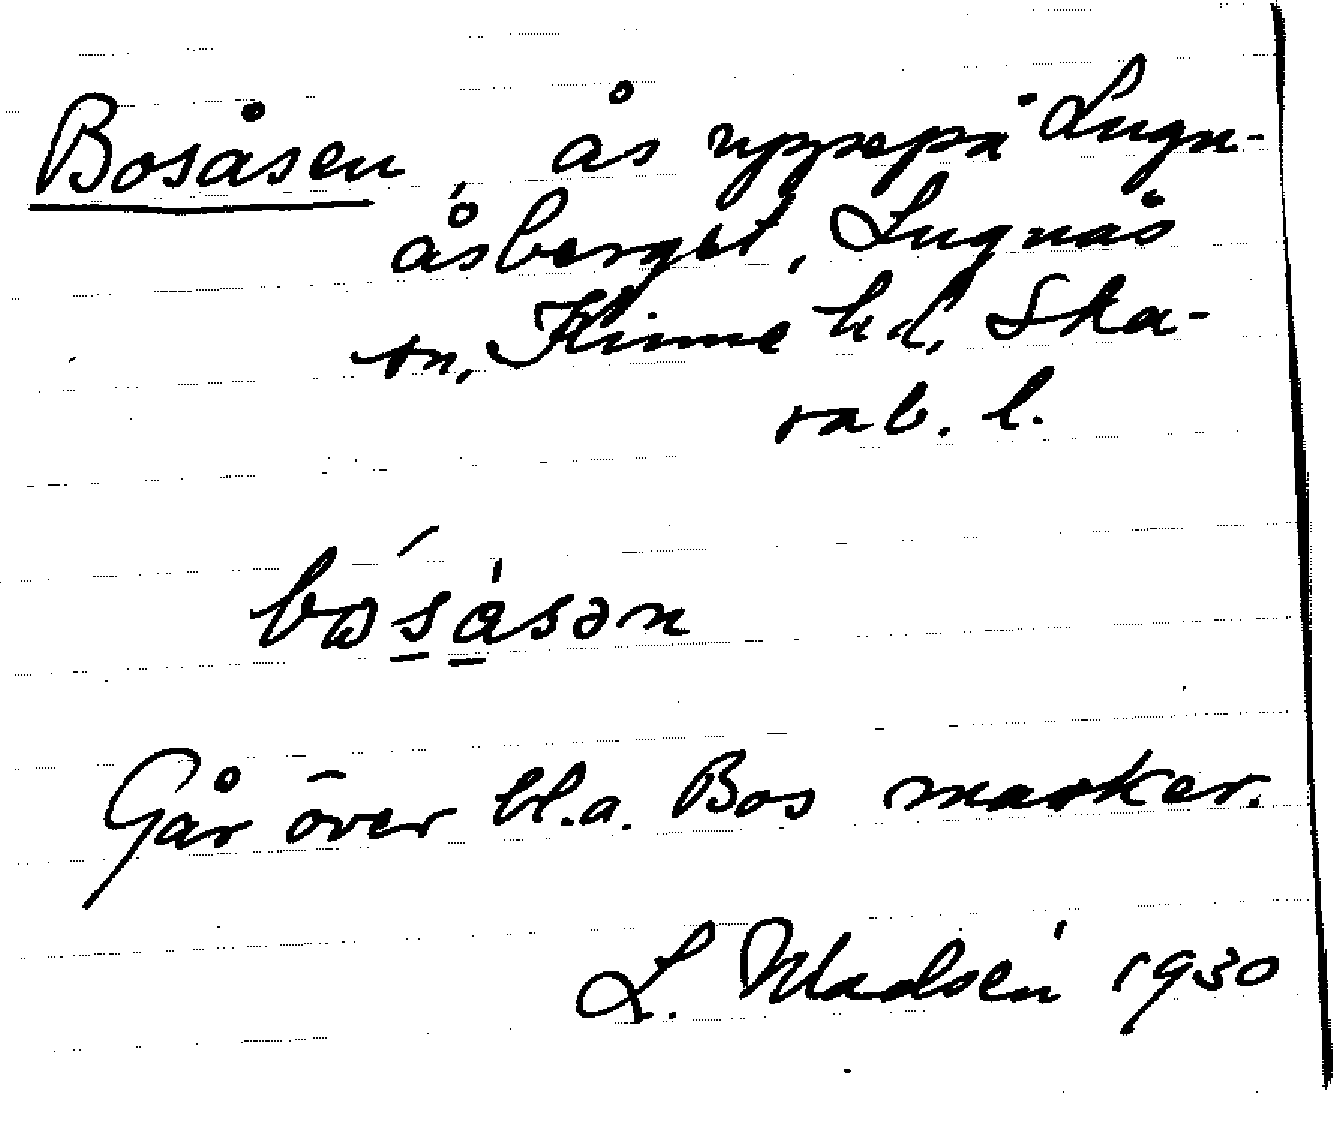 Bosåsen, ås uppepå Lugn-
åsberget, Lugnås
sn, Kinne hd, Ska-
rab. l.
bωsåsən
Går över bl.a. Bos marker.
L. Madsén 1930